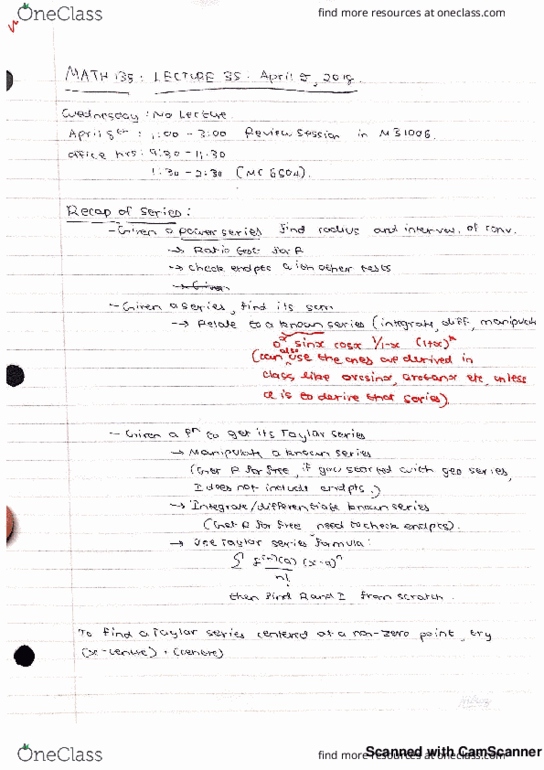 OneClass
find more resources at oneclass.com
MATH 138 : LECTURE 35 - April 2, 2018.
Wednesday : No Lecture
April 5th : 1:00 - 3:00 Review Session in M31006
Office hrs : 9:30 - 11:30
1:30 - 2:30 (MC 6504).
Recap of Series :
- Given a power series find radius and interval of conv.
→ Ratio test for R
→ check endpts with other tests
→ Given
- Given a series, find its sum
→ Relate to a known series (integrate, diff, manipulate
e^x sinx cosx 1/1-x (1+x)^k
(can also use the ones we derived in
class, like arcsinx, arctanx etc, unless
Q is to derive that series).
- Given a fn to get its Taylor series
→ Manipulate a known series
(Get R for free, if you started with geo series,
I does not include endpts.)
→ Integrate/differentiate known series
(Get R for free need to check endpts).
→ Use Taylor series formula :
∑ f^(n)(a) (x-a)^n
n!
then find R and I from scratch.
To find a Taylor series centered at a non-zero point, try
(x-centre) + (centre)
OneClass
find more resources at oneclass.com
Scanned with CamScanner